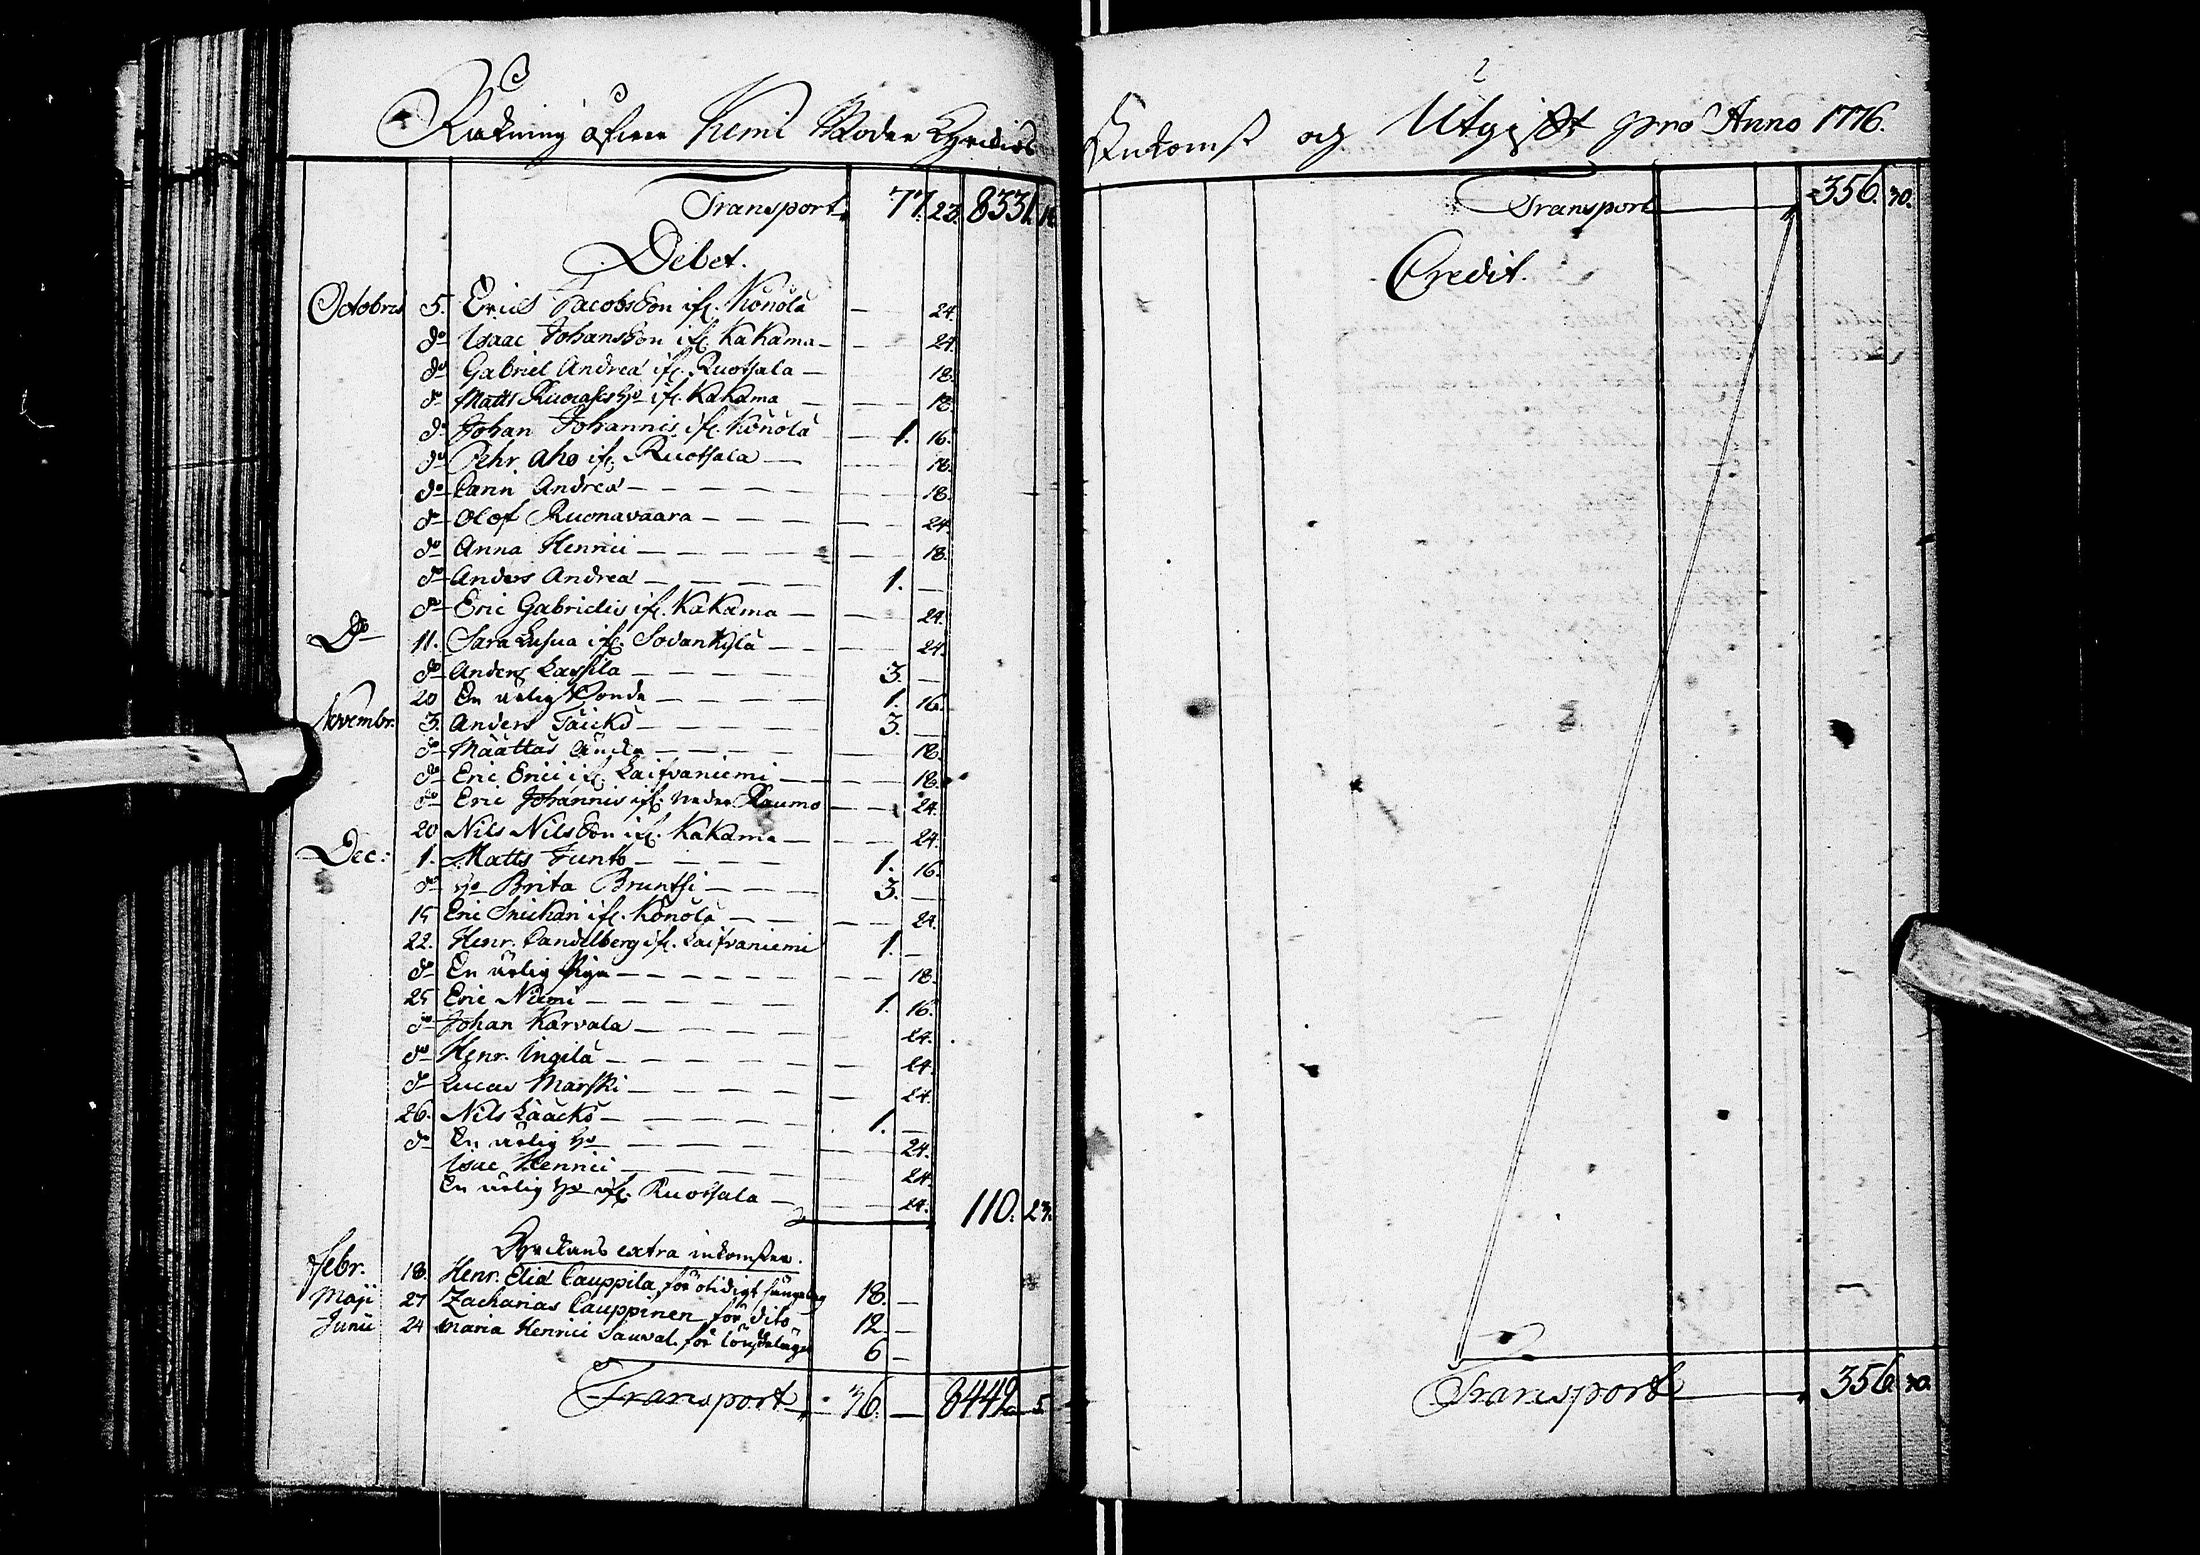 Räkning öfwer Kemi Moder Kyrckios
Transport 77. 23. 8331. 14
Debet.
Octobris 5. Erics Jacobsson ifr. Könölä — 24.
do Isaac Johansson ifr. Kakama — 24.
do Gabriel Andreæ ifr. Ruotsala — 18.
do Matts ifr. Kakama — 18.
do Johan Johannis ifr. Könölä — 1. 16.
do Pehr Aho ifr. Ruotsala — 18.
do Carin Andreæ — 18.
do Olof Ruonavaara — 24.
do Anna Henrici — 18.
do Anders Andreæ — 1. —
do Eric Gabrielis ifr. Kakama — 24.
Do 11. Sara Lusua ifr. Sodankylä — 24.
do Anders Lassila — 3. —
20 En ärlig Bonde — 1. 16.
Novembr. 3. Anders Täickö — 3. —
do Määttäs Enka — 18.
do Eric Erici ifr. Laifvaniemi — 18.
do Eric Johannis ifr. Neder Raumo — 24.
20 Nils Nilsson ifr. Kakama — 24.
Dec: 1. Matts Junto — 1. 16.
do Ho Brita Bruntsi — 3. —
15 Eric Snickari ifr. Könölä — 24.
22. Henr. Candelberg ifr. Laifvaniemi 1. —
do En ärlig Piga — 18.
25 Eric Niemi — 1. 16.
do Johan Karvala — 24.
do Henr. Ingilä — 24.
do Lucas Marski — 24.
26. Nils Lääckö — 1. —
do En ärlig Ho — 24.
Isac Henrici — 24.
En ärlig Ho ifr. Ruotsala — 24. 110. 23.
Kyrckans extra inkomster.
Febr. 18. Henr. Eliæ Cauppila, för otidigt sängelag 18. —
Maji 27 Zacharias Cauppinen för dito 12. —
Junii 24 Maria Henrici Sauval. för Lönskeläge 6 —
Transport 36. — 8442. 5.
Inkomst och Utgift pro Anno 1776.
Transport — 356. 30.
Credit.
Transport — 356. 30.